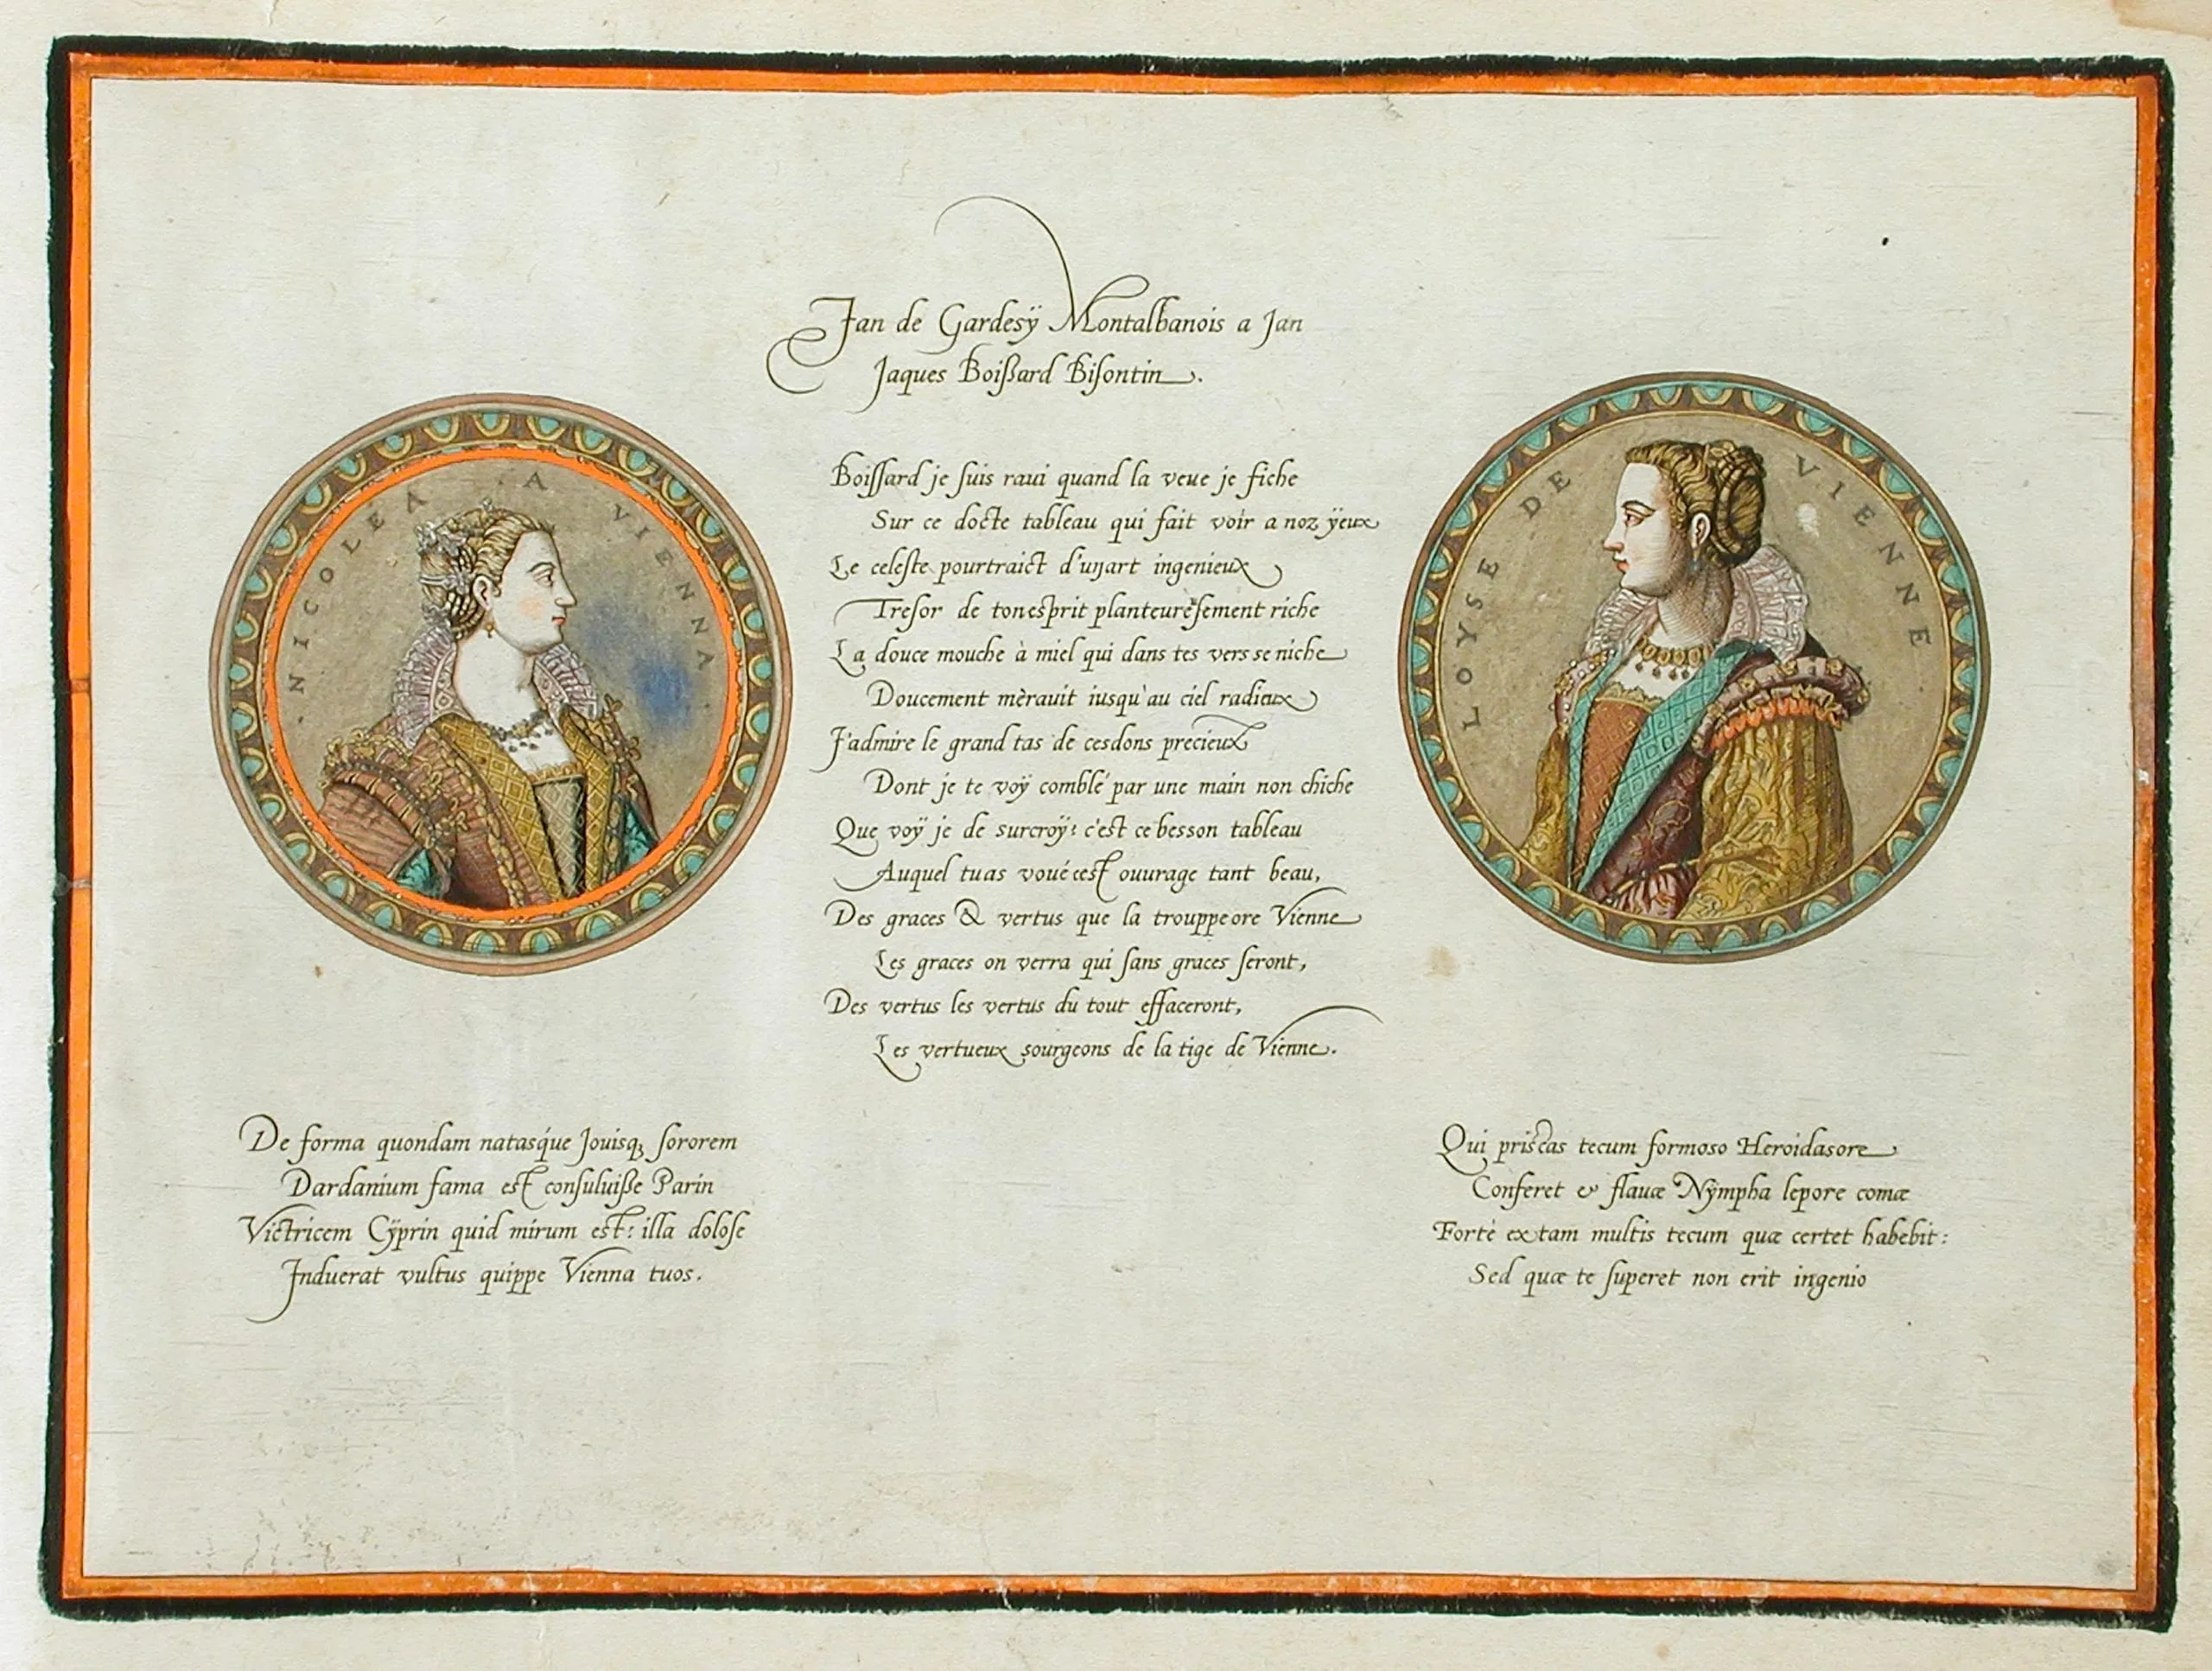 Jan de Gardesÿ Montalbanois a Jan
Jaques Boißard Bisontin.
NICOLEA A VIENNA
Boissard je suis raui quand la veue je fiche
Sur ce docte tableau qui fait voir a noz ÿeux
Le celeste pourtraict d'un art ingenieux
Tresor de ton esprit planteuresement riche
La douce mouche à miel qui dans tes vers se niche
Doucement mèrauit iusqu'au ciel radieux
J'admire le grand tas de ces dons precieux
Dont je te voÿ comblé par une main non chiche
Que voÿ je de surcroÿ? c'est ce besson tableau
Auquel tu as voué cest ouurage tant beau,
Des graces & vertus que la trouppe ore Vienne
Les graces on verra qui sans graces seront,
Des vertus les vertus du tout effaceront,
Les vertueux sourgeons de la tige de Vienne.
LOYSE DE VIENNE
De forma quondam natasq́ue Jouisq; sororem
Dardanium fama est consuluiße Parin
Victricem Cÿprin quid mirum est: illa dolose
Induerat vultus quippe Vienna tuos.
Qui priscas tecum formoso Heroidas ore
Conferet & flauæ Nÿmpha lepore comæ
Fortè ex tam multis tecum quæ certet habebit:
Sed quæ te superet non erit ingenio